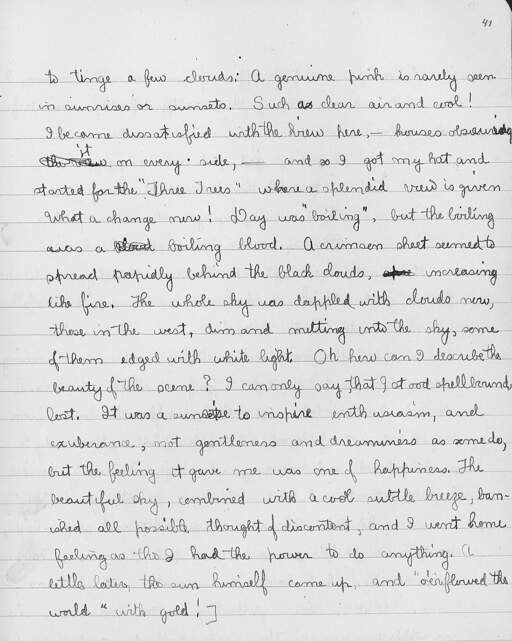 41
to tinge a few clouds. A genuine pink is rarely seen
in sunrises or sunsets. Such clear air and cool!
I became dissatisfied with the view here, — houses obscuring
it on every side, — and so I got my hat and
started for the "Three Trees" where a splendid view is given
What a change now! Day was "boiling", but the boiling
was a boiling blood. A crimson sheet seemed to
spread rapidly behind the black clouds, increasing
like fire. The whole sky was dappled with clouds now,
those in the west, dim and melting into the sky, some
of them edged with white light. Oh how can I describe the
beauty of the scene? I can only say that I stood spellbound,
lost. It was a sunrise to inspire enthusiasm, and
exuberance, not gentleness and dreaminess as some do,
but the feeling it gave me was one of happiness. The
beautiful sky, combined with a cool subtle breeze, ban-
ished all possible thought of discontent, and I went home
feeling as tho I had the power to do anything. (A
little later, the sun himself came up, and "o'erflowed the
world" with gold!]